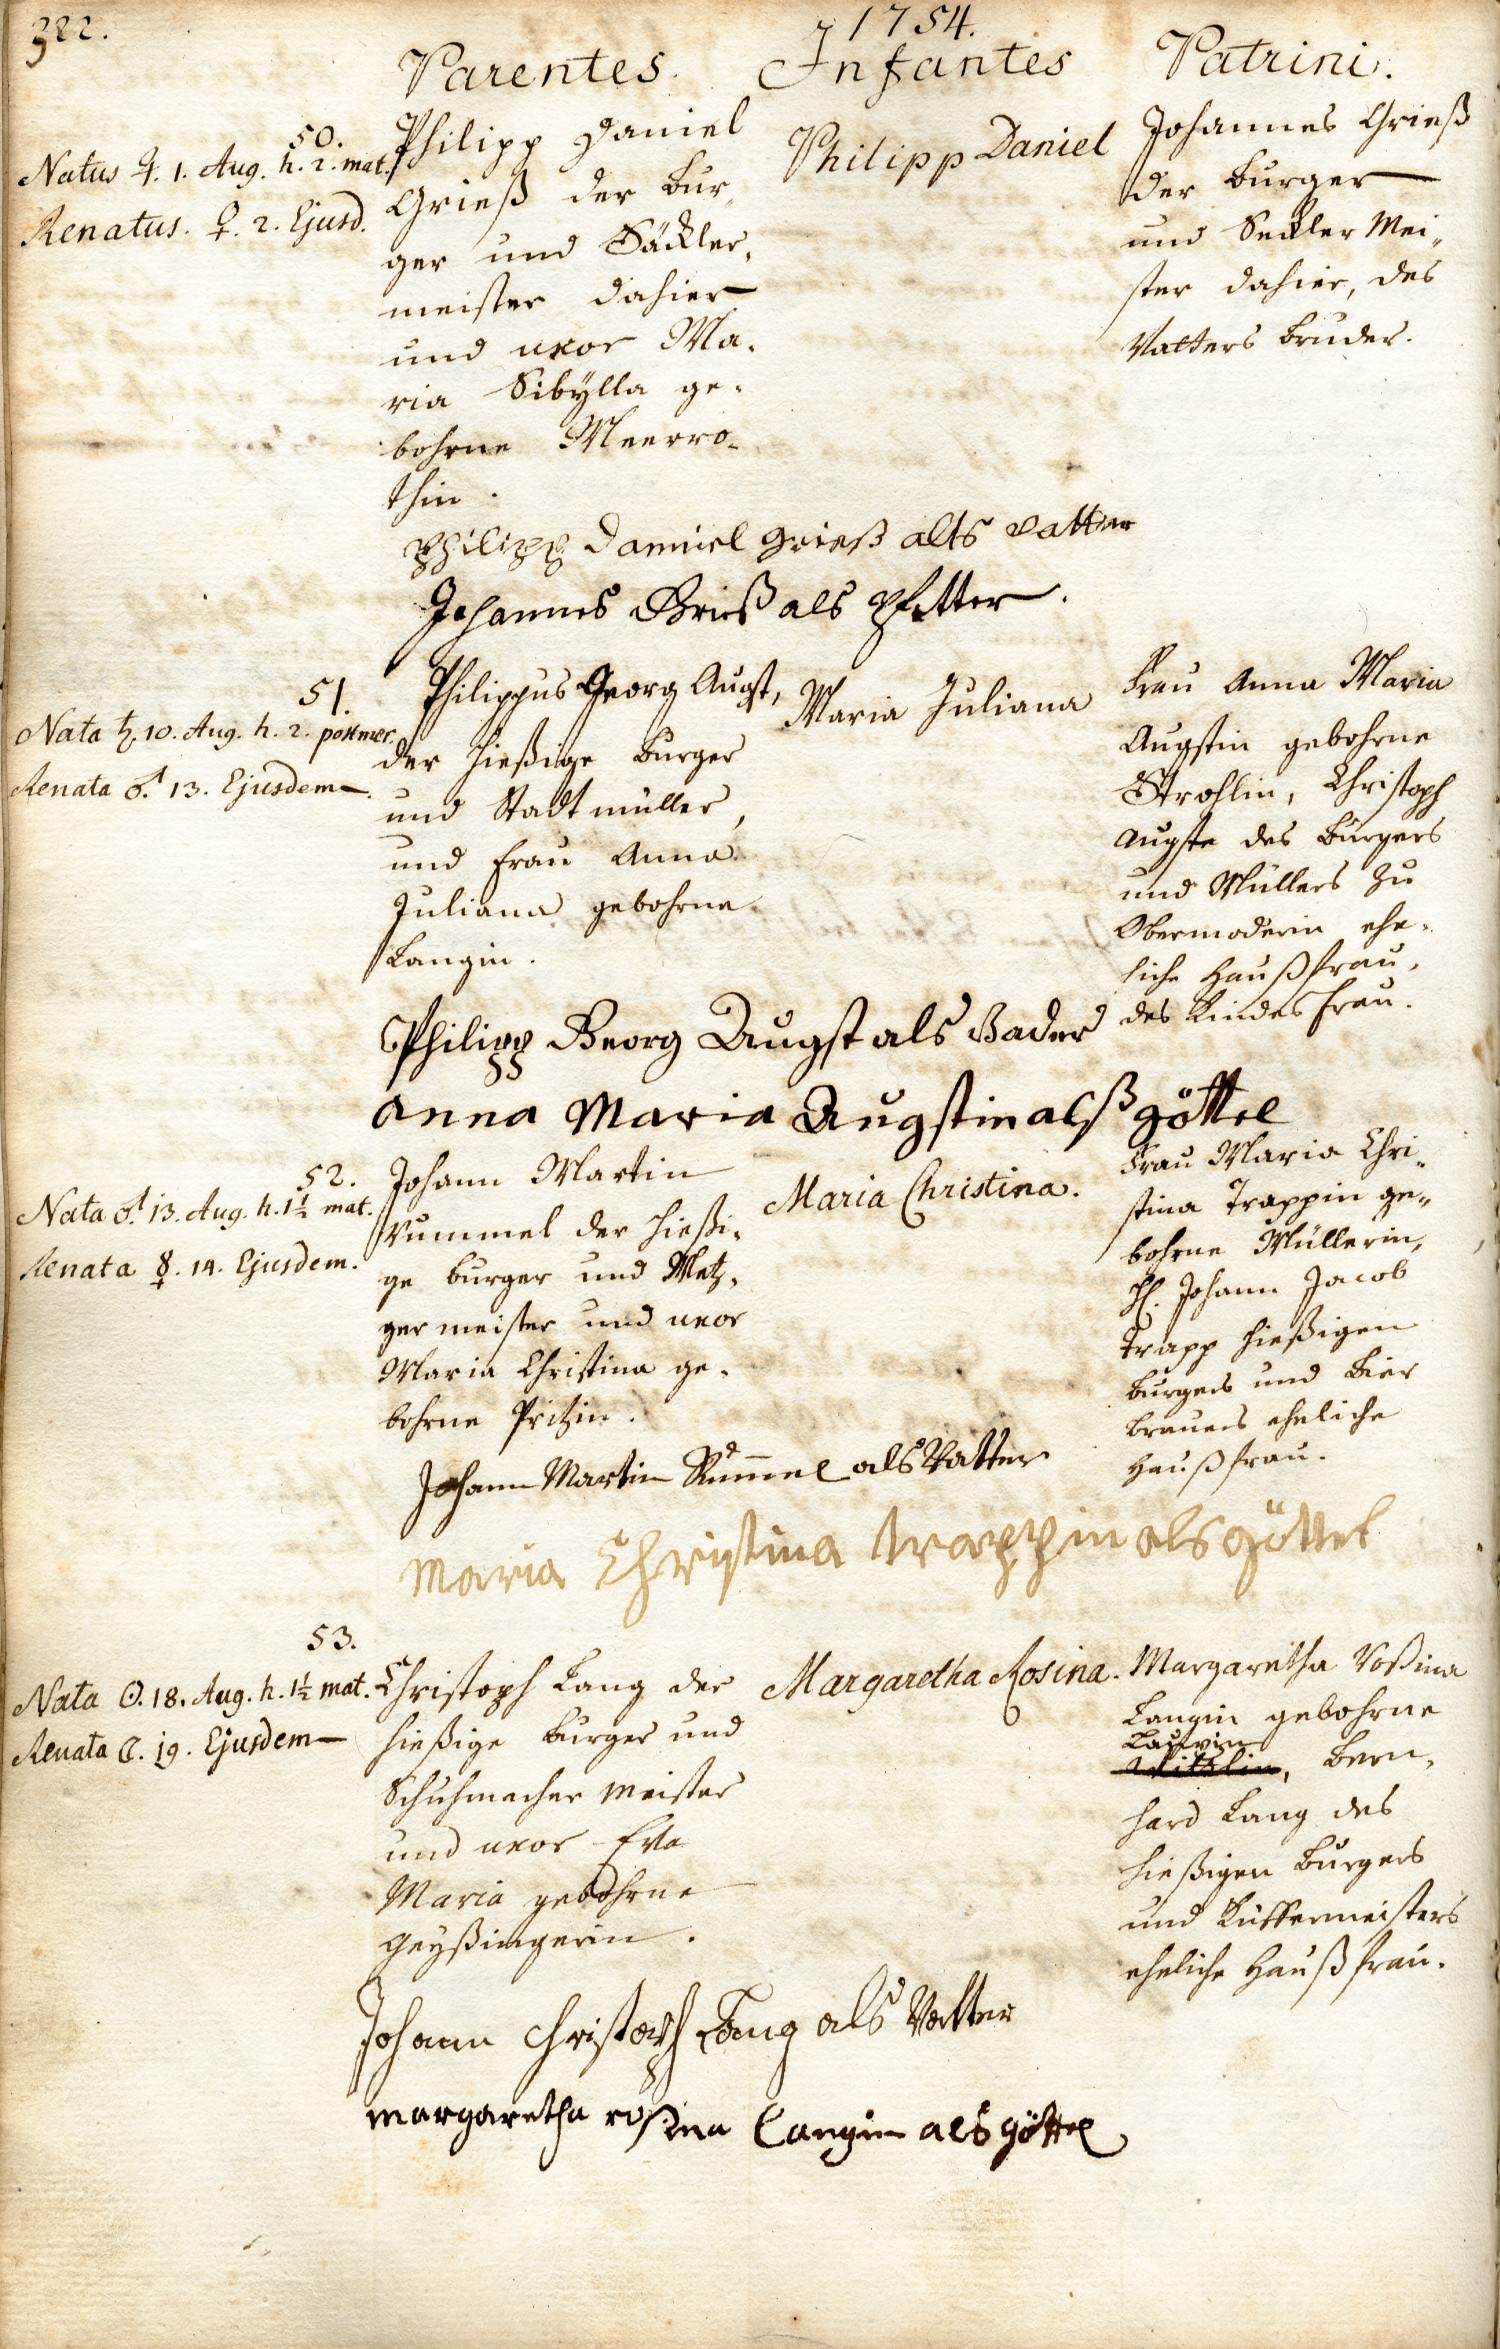 322.
1754.
Parentes. Infantes Patrini.
50.
Natus ♃. 1. Aug. h. 2. mat.
Renatus. ♀. 2. Ejusd.
Philipp Daniel
Grieß der bur„
ger und Säckler„
meister dahier
und uxor Ma„
ria Sibÿlla ge„
bohrne Meerro„
thin.
Philipp Daniel
Johannes Grieß
der burger
und Seckler Mei„
ster dahier, des
Vatters bruder.
Philipp Daniel Grieß alts vatter
Johannes Grieß als Pfetter.
51.
Nata ♄. 10. Aug. h. 2. postmer.
Renata ♂. 13. Ejusdem.
Philippus Georg Augst,
der hießige burger
und Stadtmüller,
und frau Anna
Juliana gebohrne
Langin.
Maria Juliana
Frau Anna Maria
Augstin gebohrne
Strohlin, Christoph
Augsts des burgers
und Müllers zu
Obermodern ehe„
liche Haußfrau,
des Kindes frau.
Philipp Georg Augst als Vader
Anna Maria Augstin alß göttel
52.
Nata ♂. 13. Aug. h. 1½ mat.
Renata ☿. 14. Ejusdem.
Johann Martin
Rummel der hießi„
ge burger und Metz„
germeister und uxor
Maria Christina ge„
bohrne Pritzin.
Maria Christina.
Frau Maria Chri„
stina Trappin ge„
bohrne Müllerin,
H. Johann Jacob
Trapp hießigen
burgers und bier
brauers eheliche
Haußfrau.
Johann Martin Rum̄el als Vatter
Maria Christina Trappin als göttel
53.
Nata ☉. 18. Aug. h. 1½ mat.
Renata ☾. 19. Ejusdem
Christoph Lang der
hießige burger und
Schuhmacher meister
und uxor Eva
Maria gebohrne
Geyßingerin.
Margaretha Rosina.
Margaretha Roßina
Langin gebohrne
, bern„
hard Lang des
hießigen burgers
und Kuffermeisters
eheliche Haußfrau.
Johann Christoph Lang als Vatter
margaretha roßina Langin als göttel